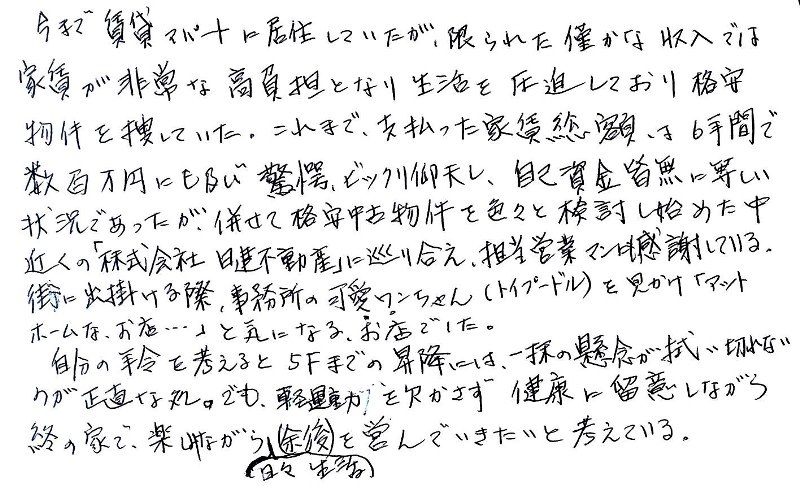 今まで賃貸アパートに居住していたが、限られた僅かな収入では
家賃が非常な高負担となり生活を圧迫しており格安
物件を捜していた。これまで、支払った家賃総額は6年間で
数百万円にも及び驚愕、ビックリ仰天し、自己資金皆無に等しい
状況であったが、併せて格安中古物件を色々と検討し始めた中
近くの「株式会社 日進不動産」に巡り合え、担当営業マンには感謝している。
街に出掛ける際、事務所の可愛いワンちゃん(トイプードル)を見かけ「アット
ホームな、お店…」と気になる、お店でした。
自分の年令を考えると5Fまでの昇降には、一抹の懸念が拭い切れない
のが正直な処。でも、軽運動を欠かさず健康に留意しながら
終の家で、楽しみながら(余後)を営んでいきたいと考えている。
(日々生活)